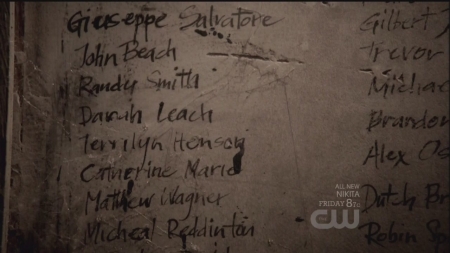 Giuseppe Salvatore
John Beach
Randy Smith
Darah Leach
Terrilyn Henson
Catherine Marie
Matthew Wagner
Micheal Reddinton
Gilbert
Trevor
Michae
Brandon
Alex Os
Dutch Br
Robin Sp
ALL NEW
NIKITA
FRIDAY 8/7c
CW